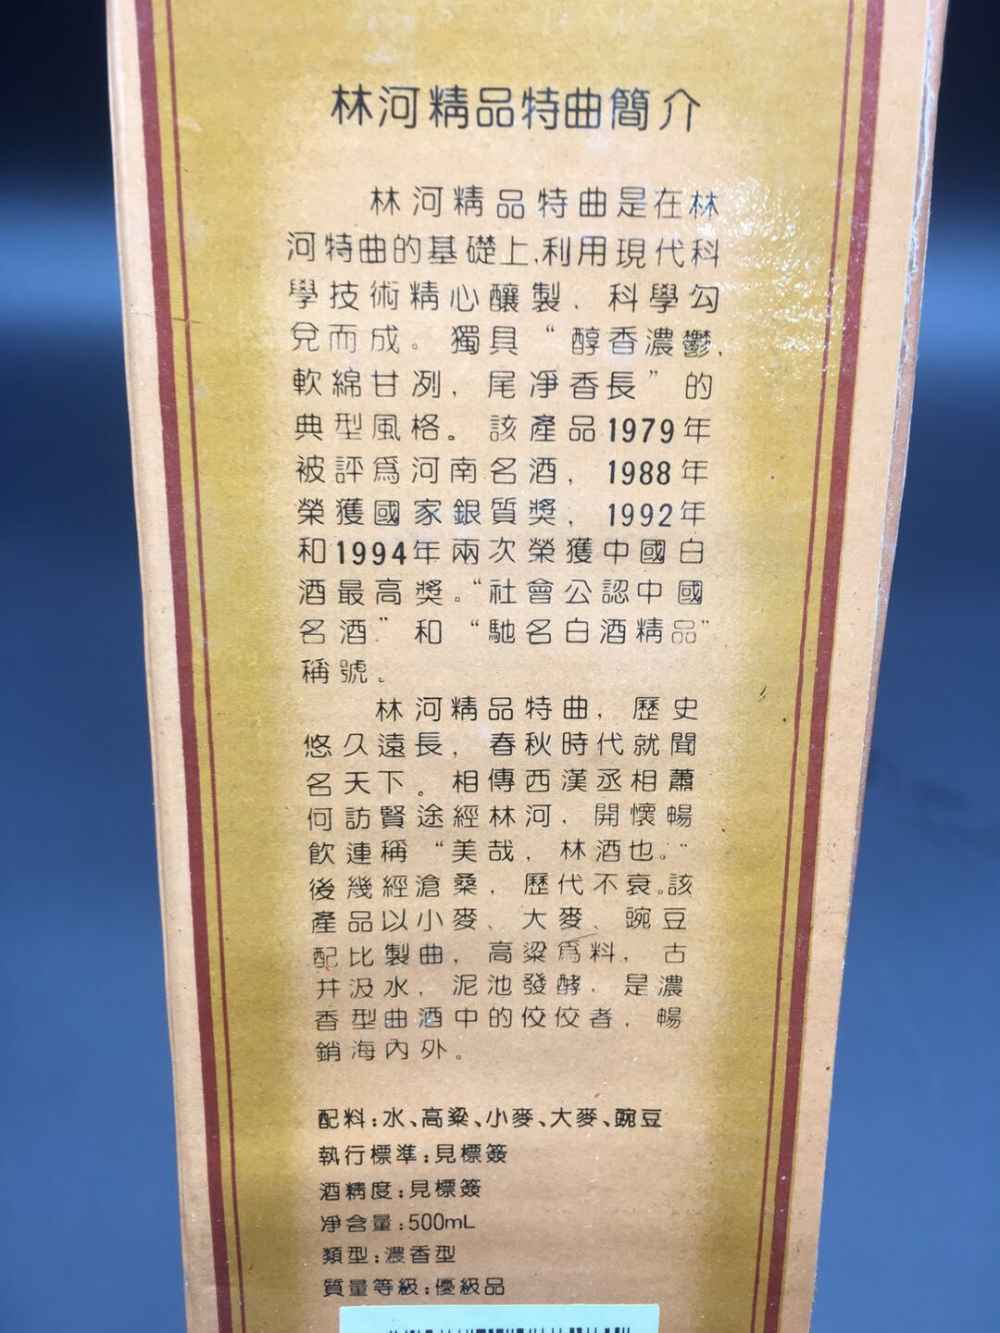 林河精品特曲簡介
林河精品特曲是在林
河特曲的基礎上,利用現代科
學技術精心釀製、科學勾
兌而成。獨具“醇香濃鬱,
軟綿甘冽，尾凈香長”的
典型風格。該產品1979年
被評爲河南名酒，1988年
榮獲國家銀質獎，1992年
和1994年兩次榮獲中國白
酒最高獎。“社會公認中國
名酒”和“馳名白酒精品”
稱號。
林河精品特曲，歷史
悠久遠長，春秋時代就聞
名天下。相傳西漢丞相蕭
何訪賢途經林河，開懷暢
飲連稱“美哉，林酒也。”
後幾經滄桑，歷代不衰。該
產品以小麥、大麥、豌豆
配比製曲，高粱爲料，古
井汲水，泥池發酵，是濃
香型曲酒中的佼佼者，暢
銷海內外。
配料:水、高粱、小麥、大麥、豌豆
執行標準:見標簽
酒精度:見標簽
凈含量:500mL
類型:濃香型
質量等級:優級品